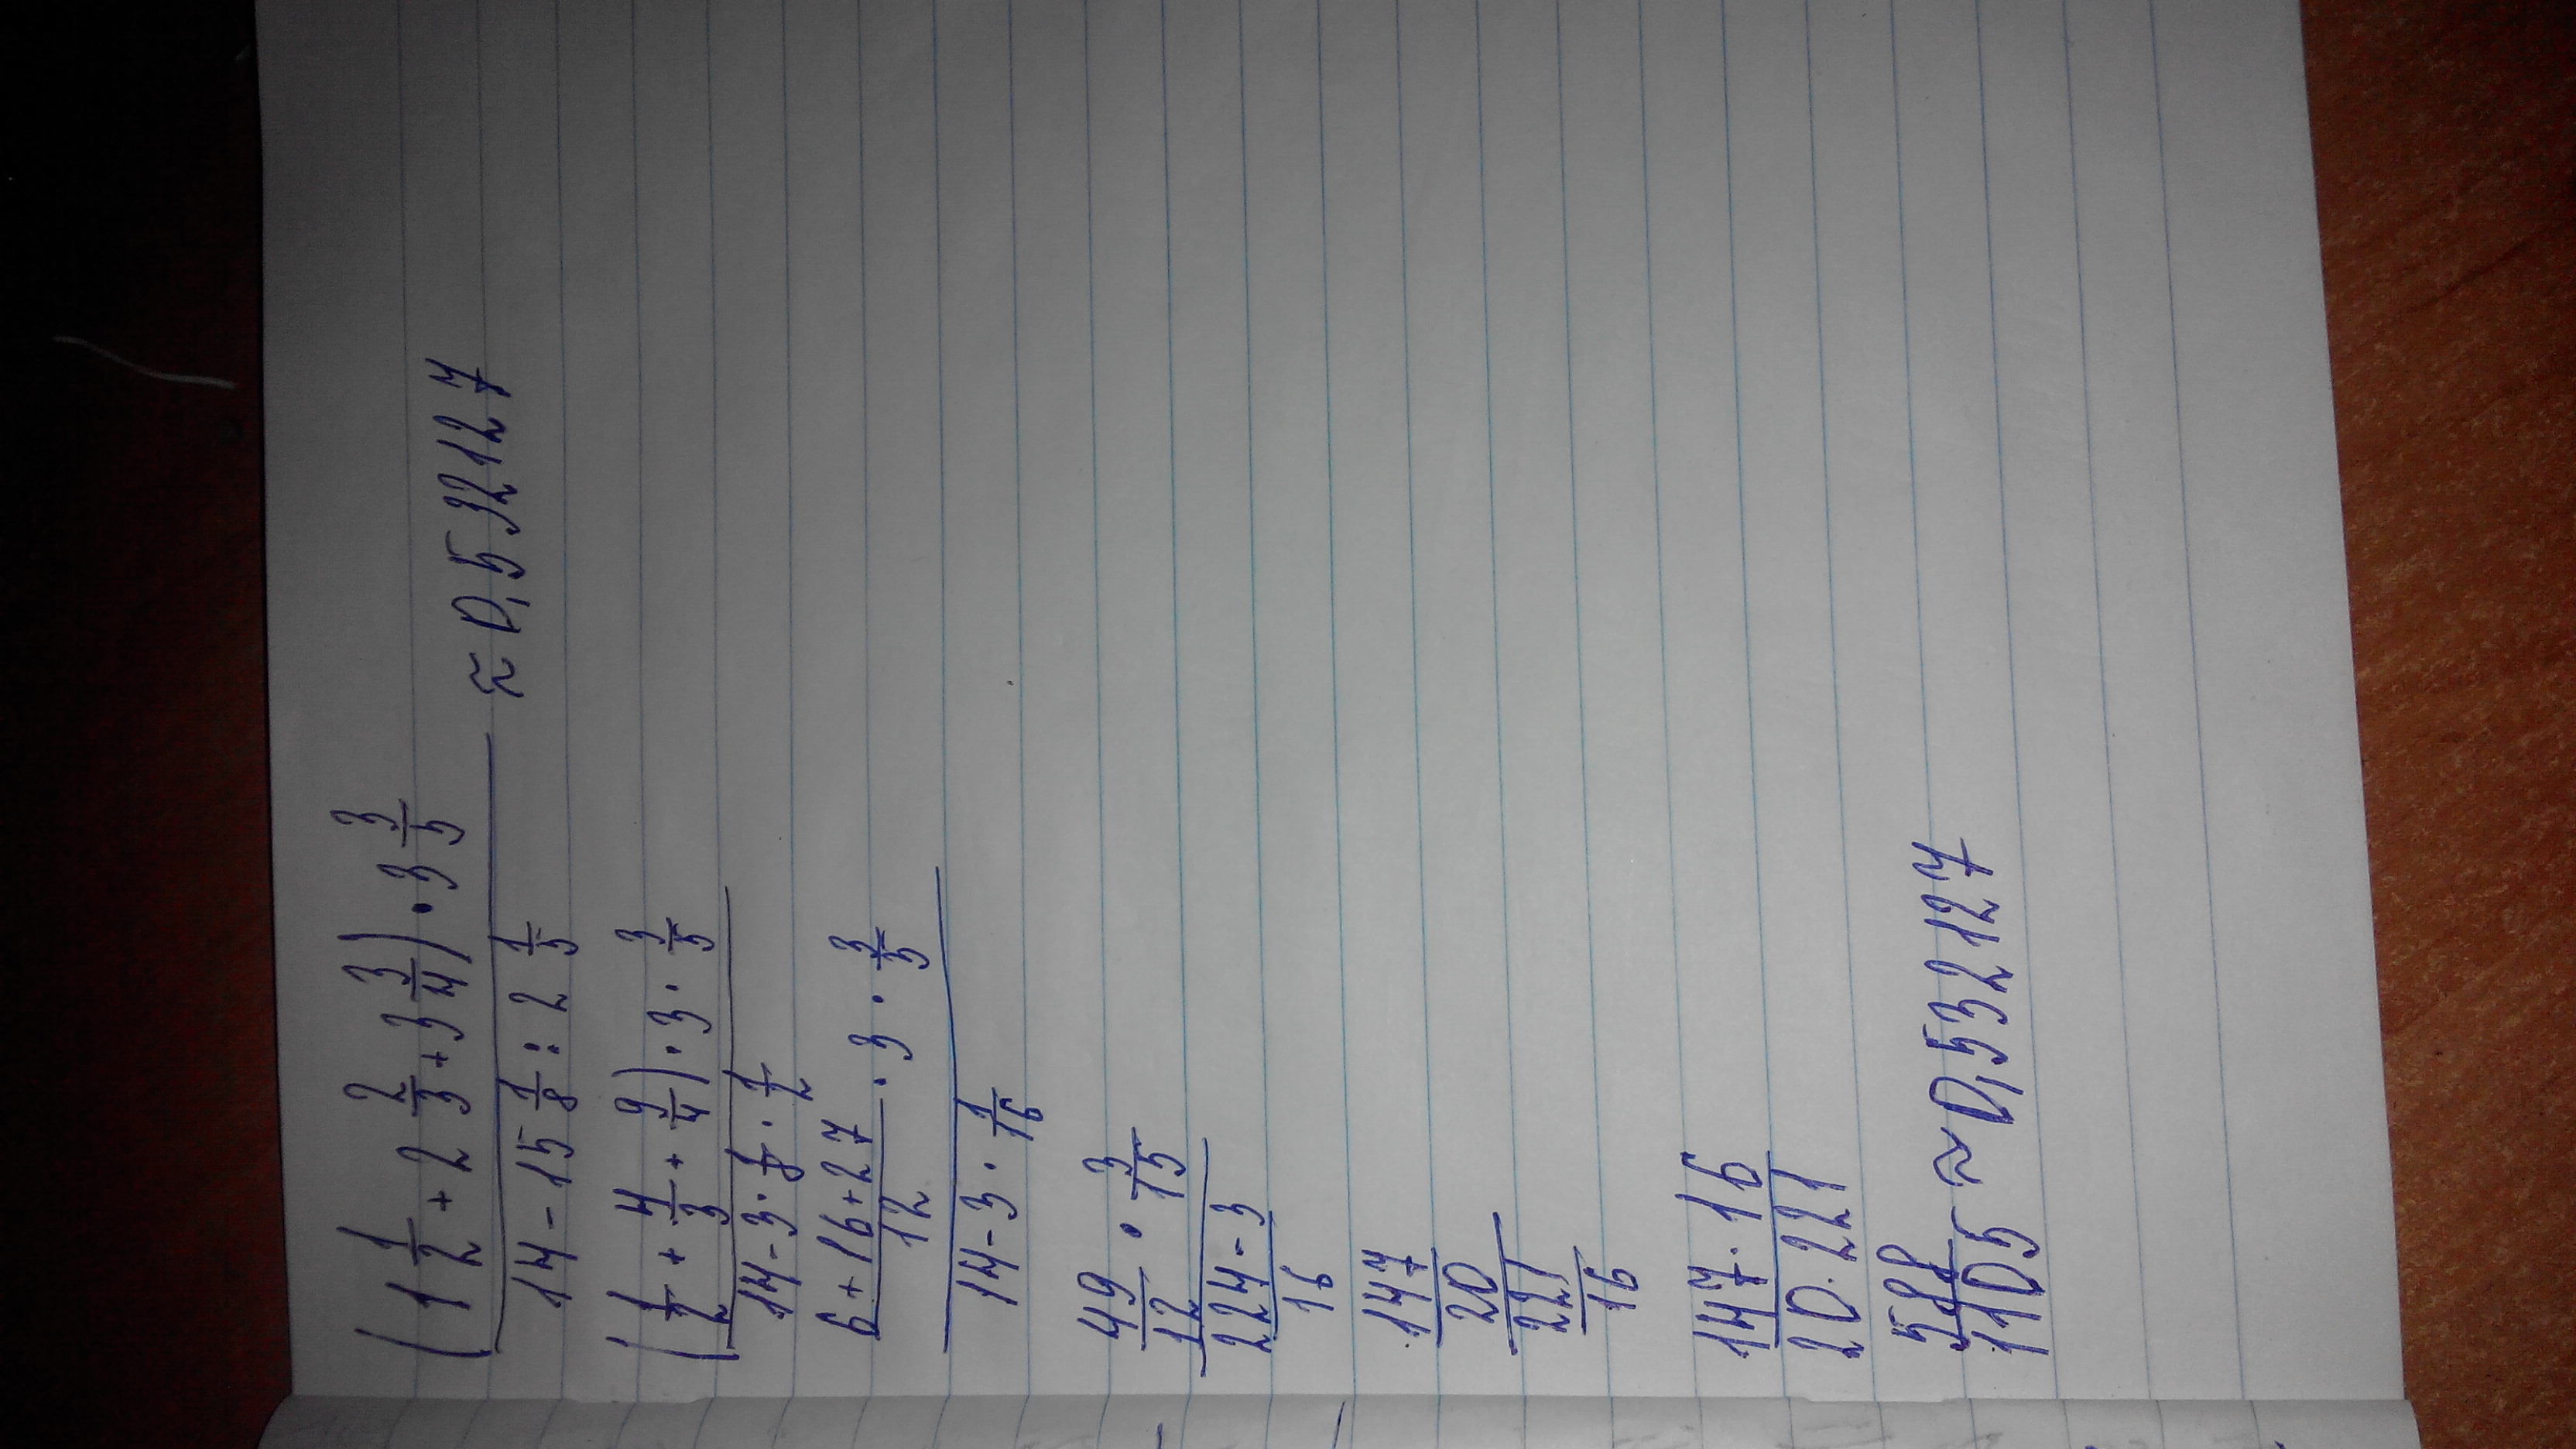 (1 1/2 + 2 2/3 + 3 3/4) · 3 3/5
14 - 15 1/8 : 2 1/5
≈ 0,532127
(1/2 + 4/3 + 9/4) · 3 · 3/5
14 - 3 · 1/8 · 1/2
6 + 16 + 27 / 12 · 3 · 3/5
14 - 3 · 1/16
49/12 · 3/15
224 - 3 / 16
147/20
221/16
147 · 16
20 · 221
588/1105 ≈ 0,532127